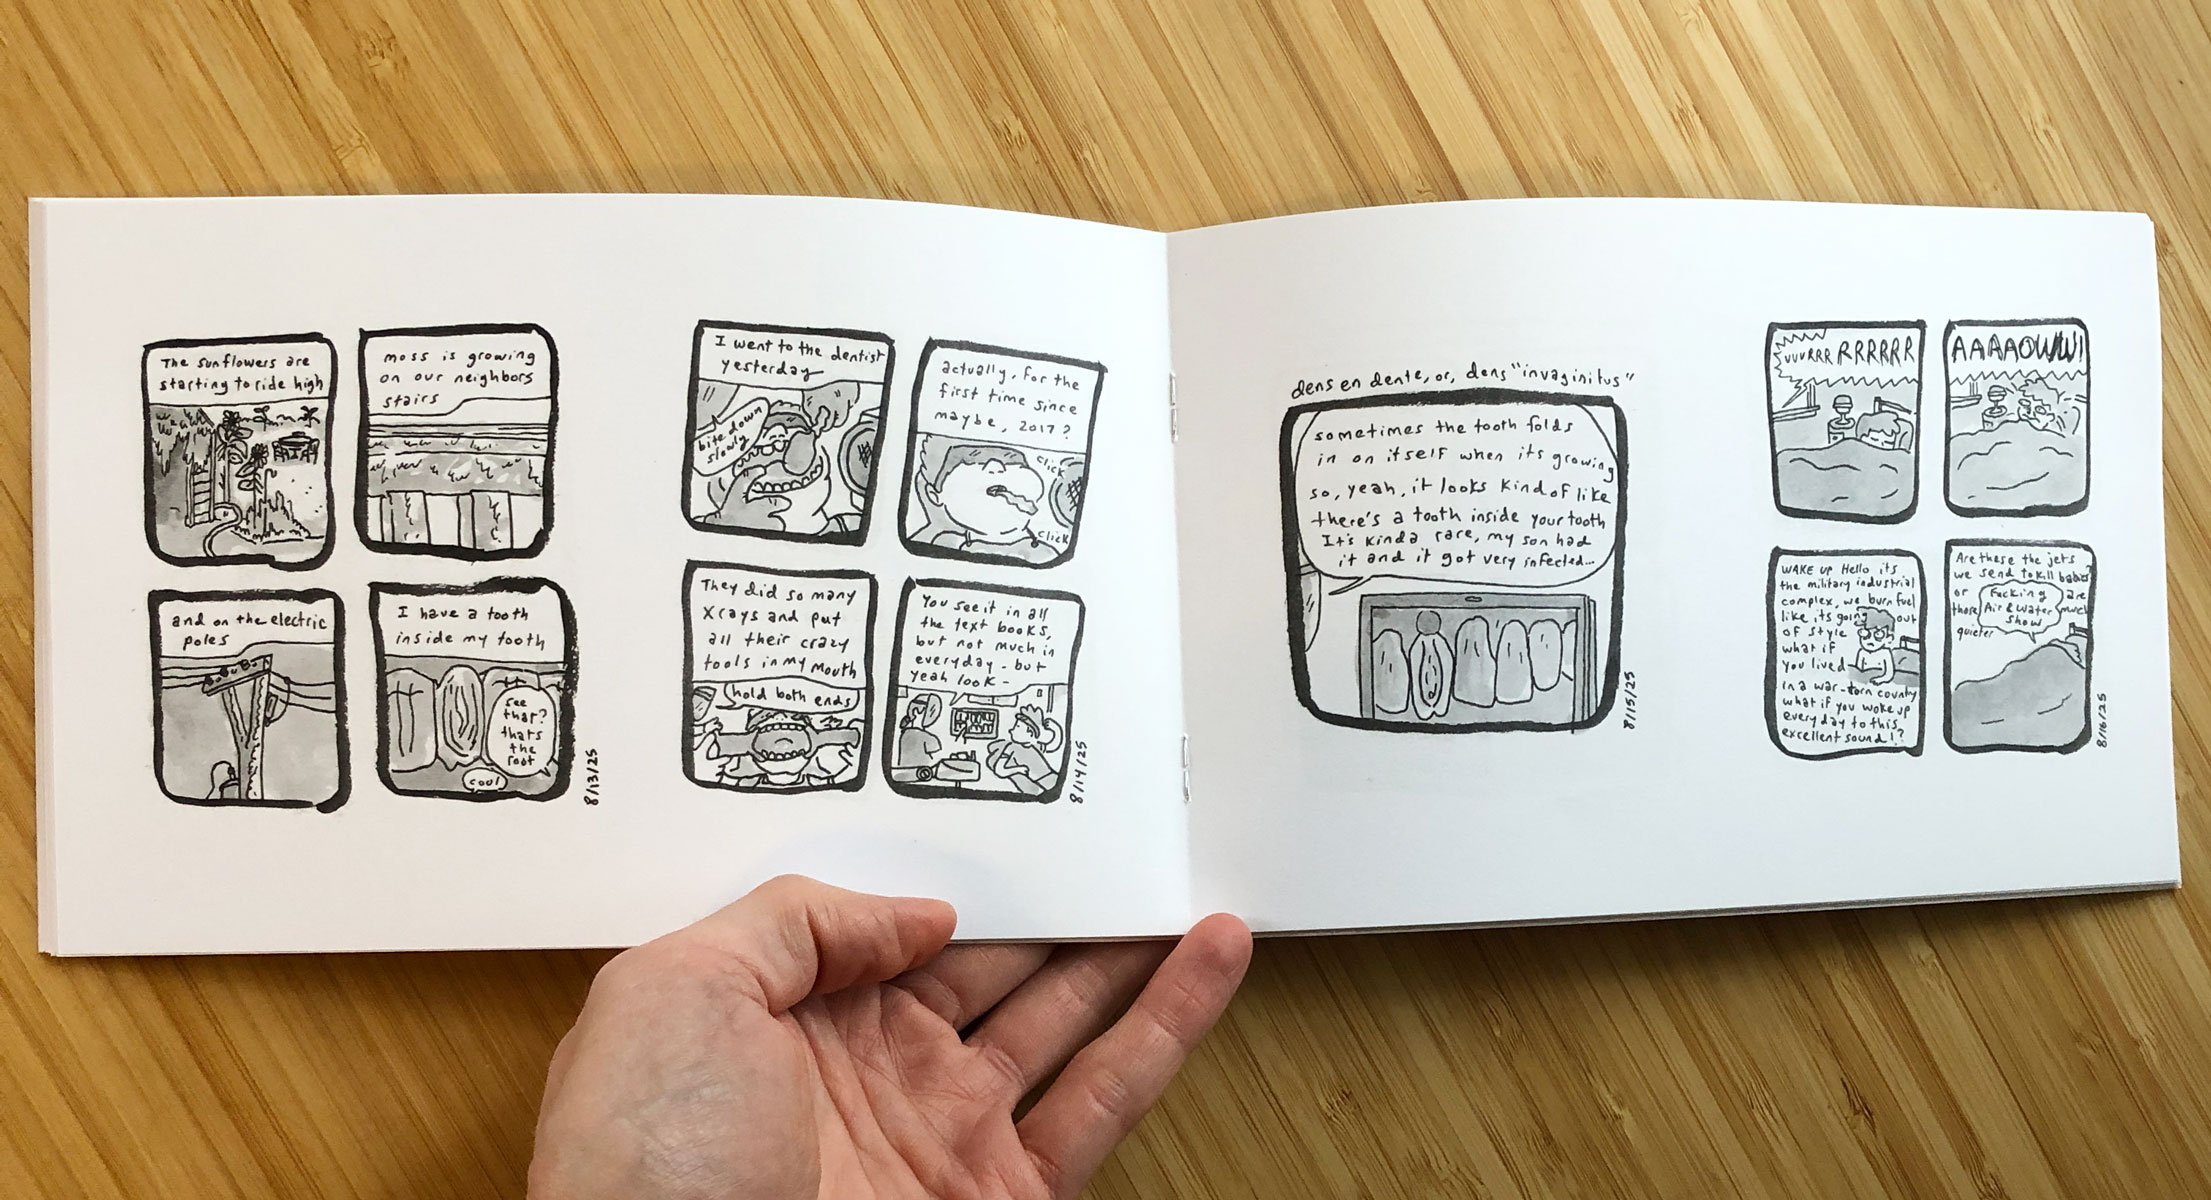 The sunflowers are
starting to ride high
moss is growing
on our neighbors
stairs
and on the electric
poles
I have a tooth
inside my tooth
see
that?
thats
the
root
cool
8/13/25
I went to the dentist
yesterday
bite down
slowly
actually, for the
first time since
maybe, 2017?
click
click
They did so many
Xrays and put
all their crazy
tools in my mouth
hold both ends
You see it in all
the text books,
but not much in
everyday - but
yeah look -
8/14/25
dens en dente, or, dens "invaginitus"
sometimes the tooth folds
in on itself when its growing
so, yeah, it looks kind of like
there's a tooth inside your tooth
It's kinda rare, my son had
it and it got very infected...
8/15/25
VUVRRR RRRRRR
AAAAOWW!
WAKE UP Hello its
the military industrial
complex, we burn fuel
like its going out
of style
what if
you lived
in a war-torn country
what if you woke up
every day to this
excellent sound!?
Are these the jets
we send to kill babies?
or are
those much
quieter
Fucking
Air & Water
show
8/16/25